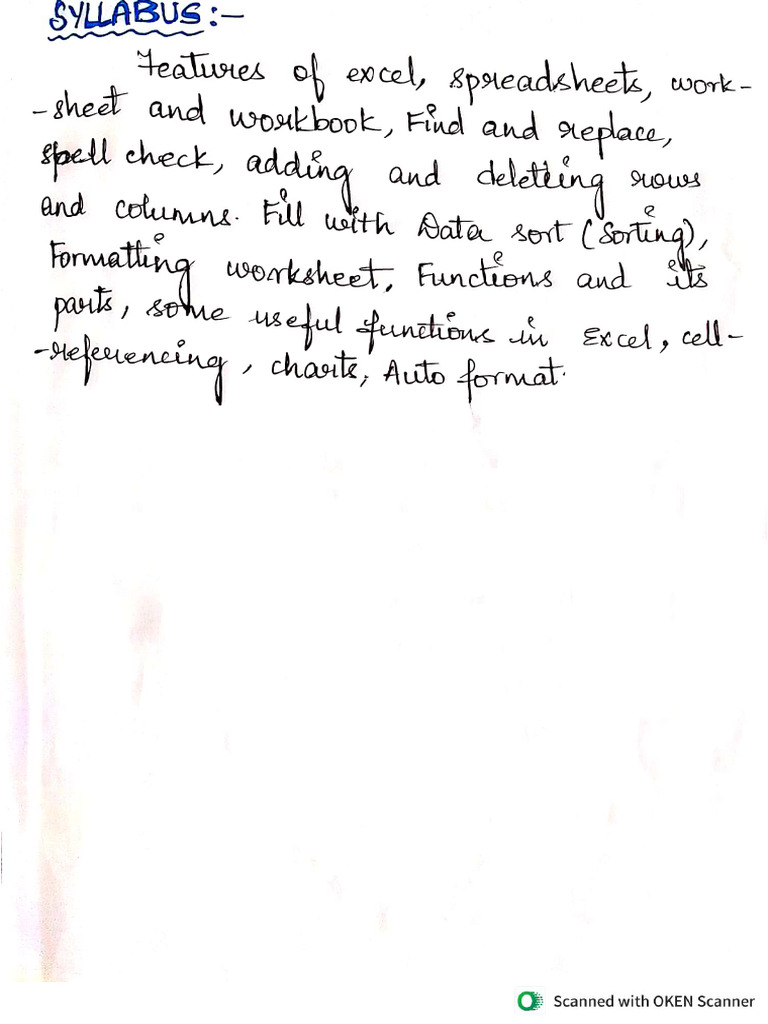 SYLLABUS:-
Features of excel, spreadsheets, work-
-sheet and workbook, Find and replace,
spell check, adding and deletting rows
and columns. Fill with Data sort (Sorting),
Formatting worksheet, Functions and its
parts, some useful functions in Excel, cell-
-referencing, charts, Auto format.
Scanned with OKEN Scanner